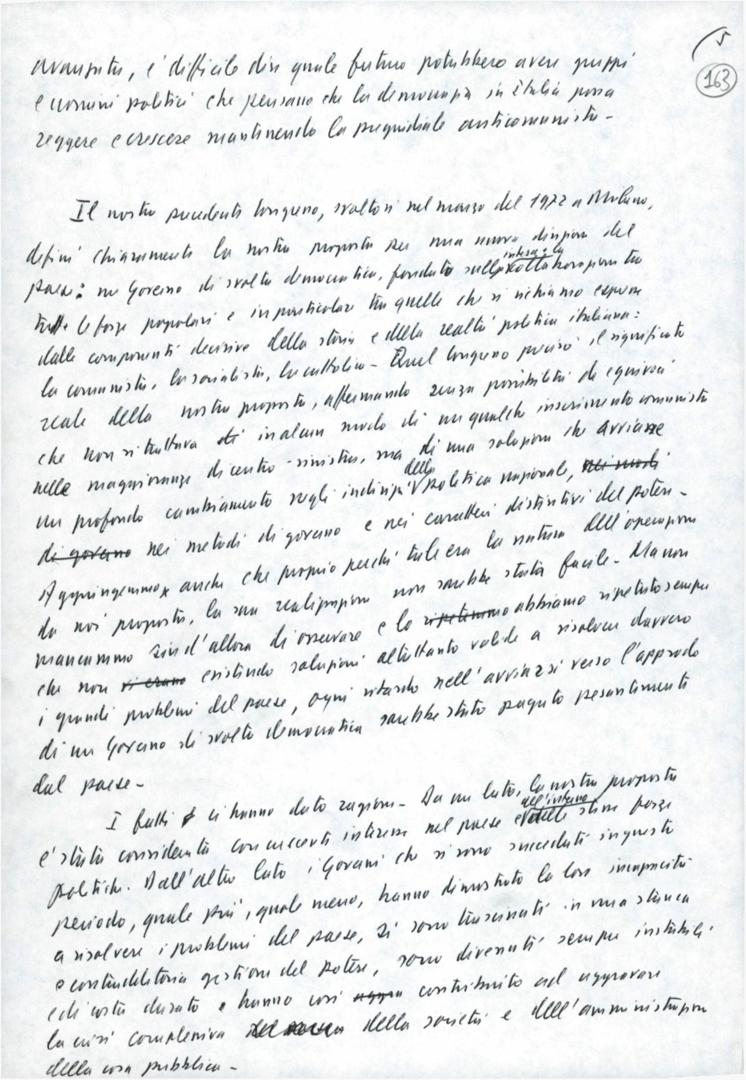 5
163
avanzata, è difficile dire quale futuro potrebbero avere gruppi
e uomini politici che pensano che la democrazia in Italia possa
reggere e crescere mantenendo la pregiudiziale anticomunista -
Il nostro precedente Congresso, svoltosi nel marzo del 1972 a Milano,
definì chiaramente la nostra proposta per una nuova direzione del
paese: un Governo di svolta democratica, fondato sulla collaborazione tra
tutte le forze popolari e in particolare tra quelle che si richiamano
dalle componenti decisive della storia e della realtà politica italiana:
la comunista, la socialista, la cattolica - Quel Congresso precisò il significato
reale della nostra proposta, affermando senza possibilità di equivoci
che non si trattava di in alcun modo di un qualche inserimento comunista
nelle maggioranze di centro-sinistra, ma di una soluzione che avviasse
un profondo cambiamento negli indirizzi della politica nazionale, nei modi
di governo nei metodi di governo e nei caratteri distintivi del potere -
Aggiungemmo anche che proprio perchè tale era la natura dell'operazione
da noi proposta, la sua realizzazione non sarebbe stata facile - Ma non
mancammo sin d'allora di osservare e lo ripetemmo abbiamo ripetuto sempre
che non vi erano esistendo soluzioni altrettanto valide a risolvere davvero
i grandi problemi del paese, ogni ritardo nell'avviarsi verso l'approdo
di un Governo di svolta democratica sarebbe stato pagato pesantemente
dal paese -
I fatti ci hanno dato ragione - Da un lato, la nostra proposta
è stata considerata con crescente interesse nel paese e all'interno delle stesse forze
politiche. Dall'altro lato i Governi che si sono succeduti in questo
periodo, quale più, quale meno, hanno dimostrato la loro incapacità
a risolvere i problemi del paese, si sono trascinati in una stanca
e contraddittoria gestione del potere, sono divenuti sempre instabili
e di corta durata e hanno così contribuito ad aggravare
la crisi complessiva della società e dell'amministrazione
della cosa pubblica -